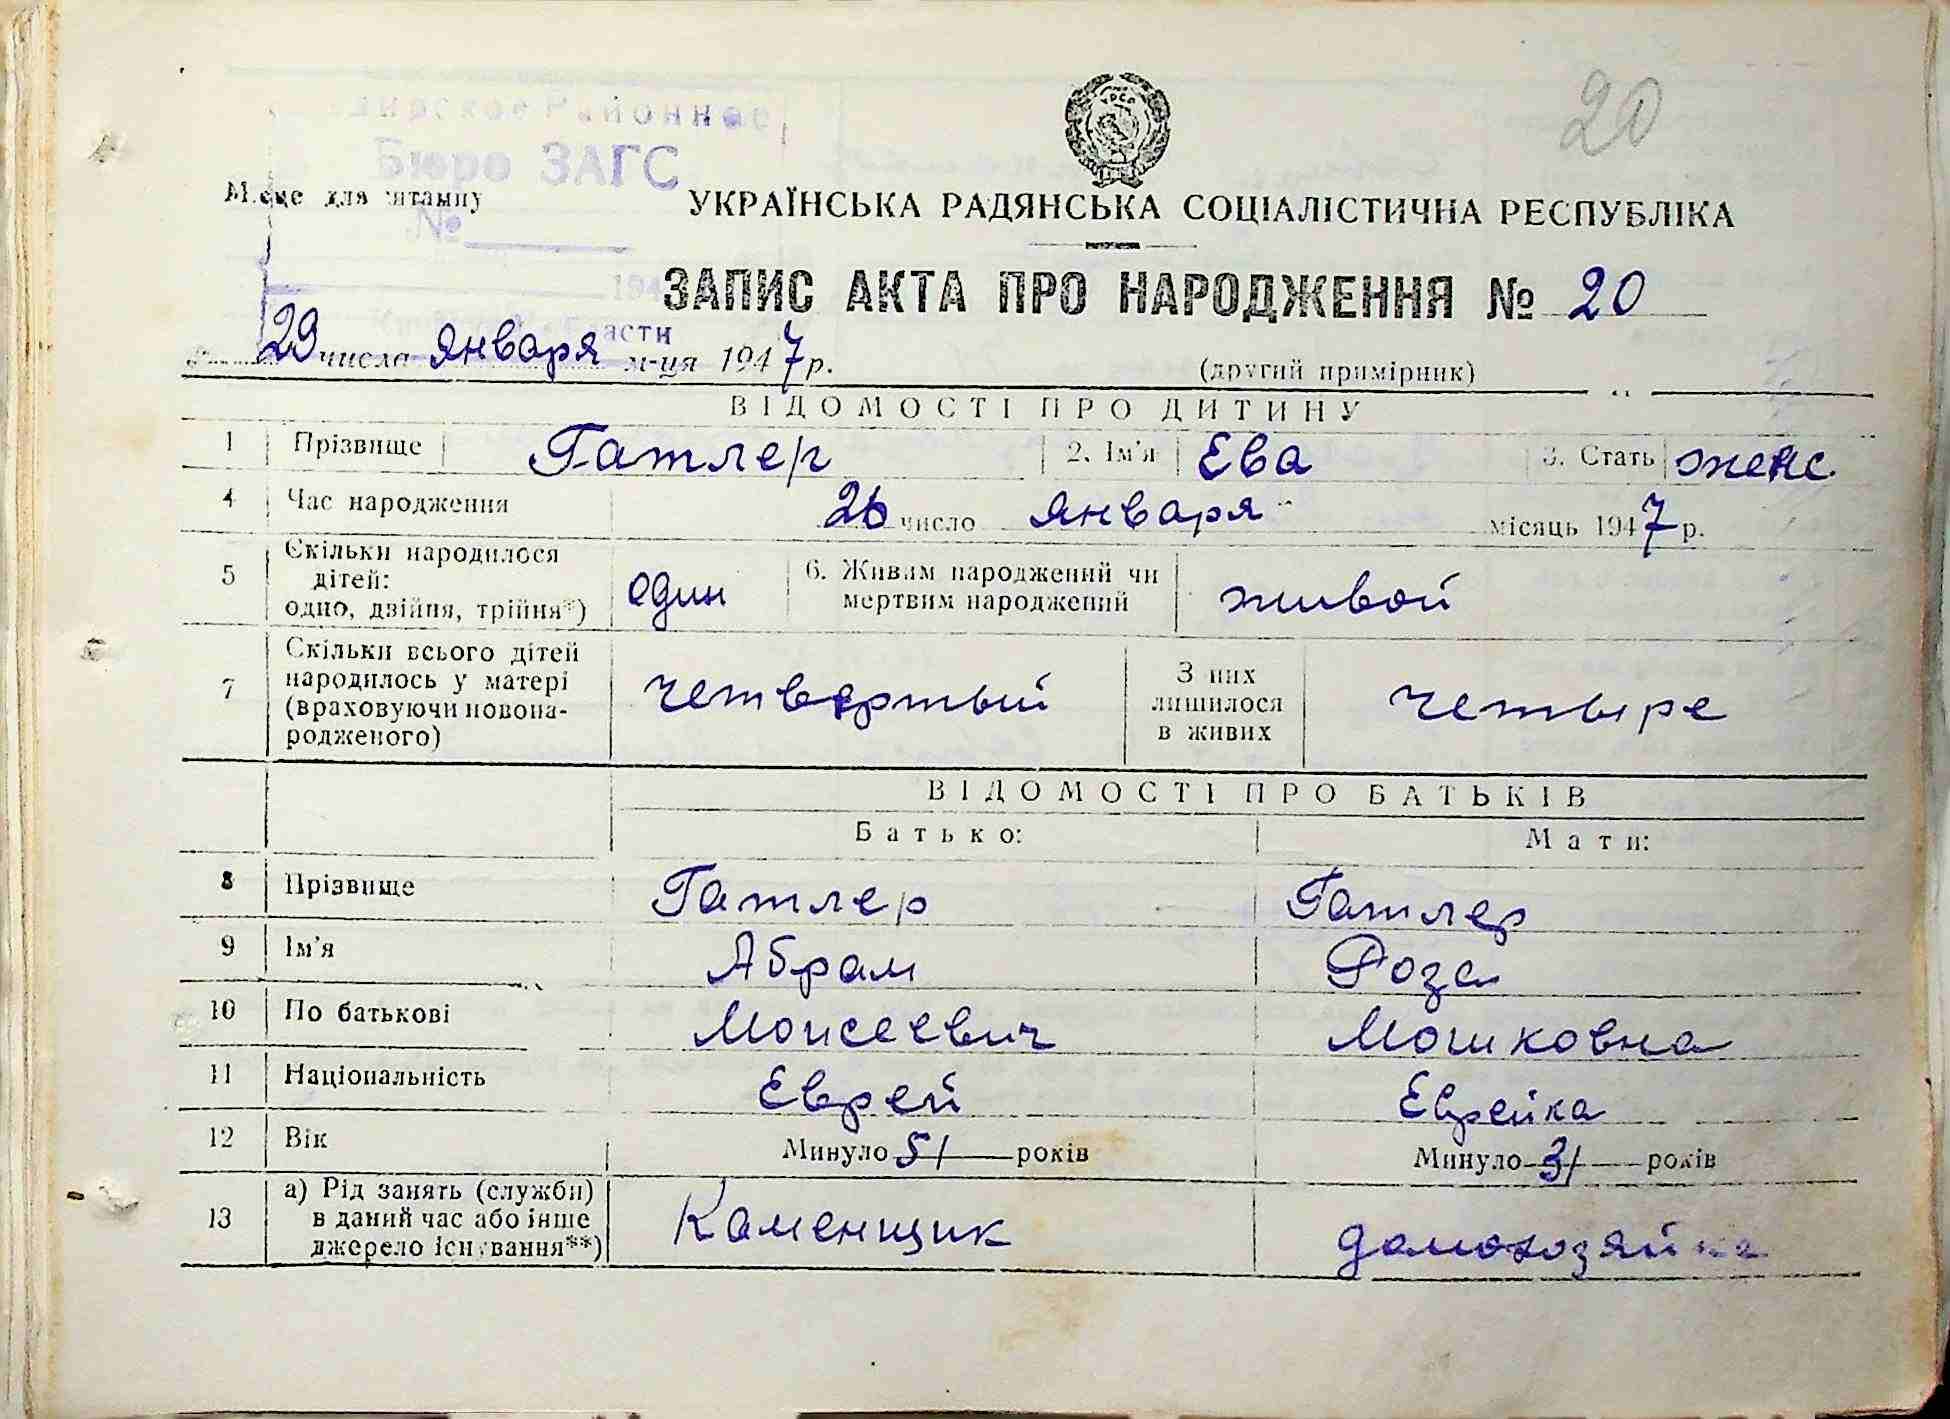 20
Районное
Бюро ЗАГС
Місце для штампу
№
УКРАЇНСЬКА РАДЯНСЬКА СОЦІАЛІСТИЧНА РЕСПУБЛІКА
194
ЗАПИС АКТА ПРО НАРОДЖЕННЯ № 20
области
29 числа января м-ця 1947 р.
(другий примірник)
ВІДОМОСТІ ПРО ДИТИНУ
1 Прізвище Гатлер 2. Ім'я Ева 3. Стать женс.
4 Час народження 26 число января місяць 1947 р.
5 Скільки народилося дітей: одно, двійня, трійня*) один 6. Живим народжений чи мертвим народжений живой
7 Скільки всього дітей народилось у матері (враховуючи новонародженого) четвертый З них лишилося в живих четыре
ВІДОМОСТІ ПРО БАТЬКІВ
Батько: Мати:
8 Прізвище Гатлер Гатлер
9 Ім'я Абрам Роза
10 По батькові Моисеевич Мошковна
11 Національність Еврей Еврейка
12 Вік Минуло 51 років Минуло 31 років
13 а) Рід занять (служби) в даний час або інше джерело існування**) Каменщик домохозяйка